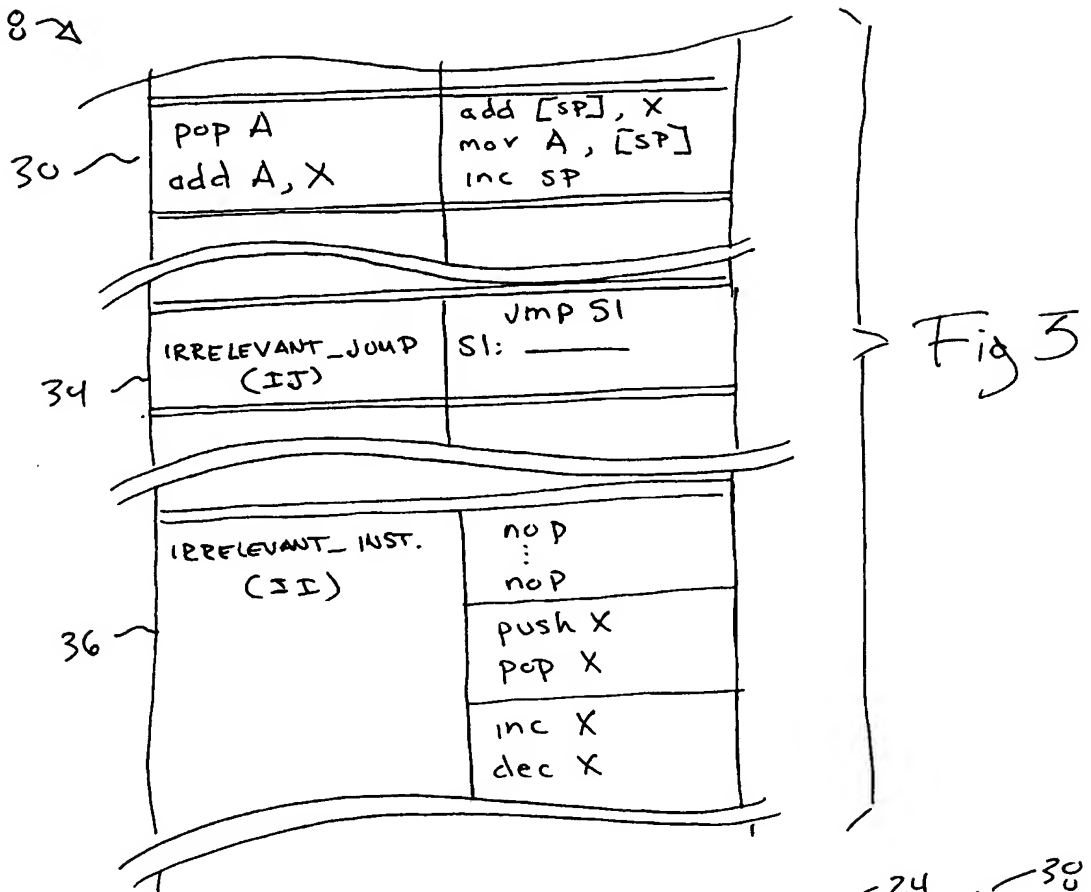 8
30
pop A
add A, X
add [SP], X
mov A, [SP]
inc SP
34
IRRELEVANT_JUMP
(IJ)
Jmp S1
S1:
Fig 3
36
IRRELEVANT_INST.
(II)
nop
⋮
nop
push X
pop X
inc X
dec X
24
38